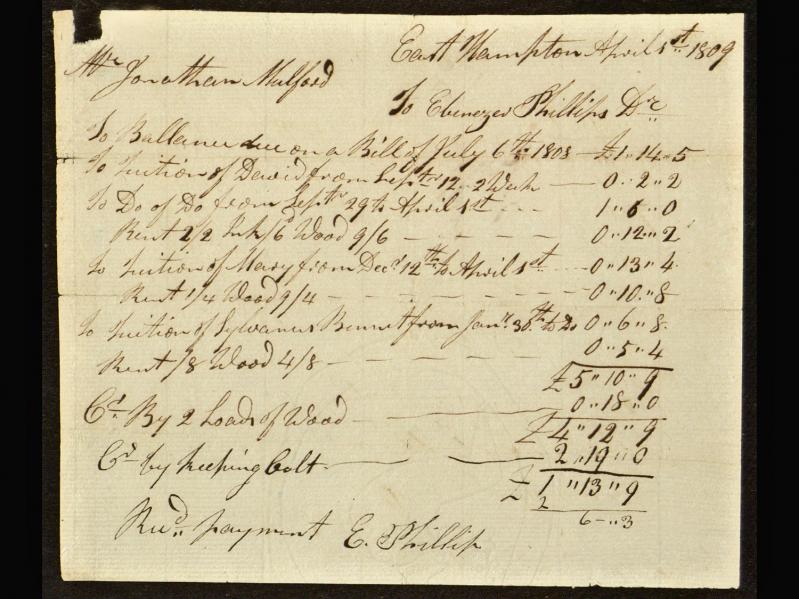 East Hampton April 1st 1809
Mr Jonathan Mulford
To Ebenezer Phillips Dr
To Ballance due on a Bill of July 6th 1808 — £1 " 14 " 5
To Tuition of David from Septr 12 - 2 Week — 0 " 2 " 2
To Do of Do from Septr 29 to April 1st - - - 1 " 6 " 0
Rent 2/2 Ink /6d Wood 9/6 - - - - - 0 " 12 " 2
To Tuition of Mary from Decr 12th to April 1st - - - 0 " 13 " 4
Rent 1/4 Wood 9/4 - - - - - - 0 " 10 " 8
To Tuition of Sylvanus Bennet from Janr 30th to Do 0 " 6 " 8
Rent /8 Wood 4/8 - - - - 0 " 5 " 4
£5 " 10 " 9
Cr By 2 Loads of Wood — 0 " 18 " 0
£4 " 12 " 9
Cr by keeping Colt — 2 " 19 " 0
£ 1 " 13 " 9
2
6 - " 3
Recd payment E. Phillips